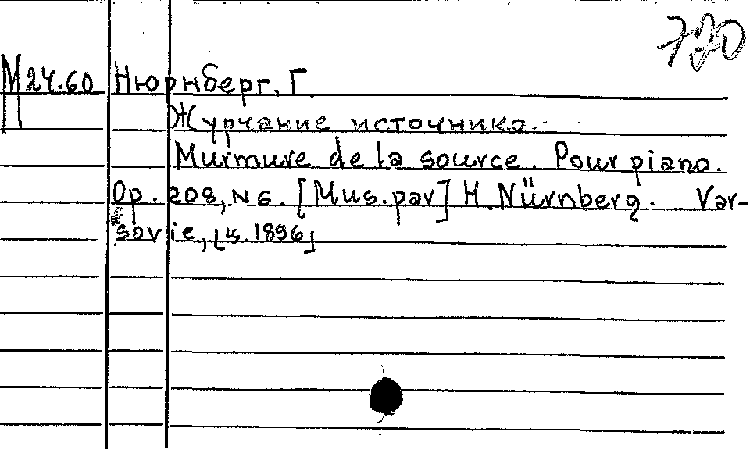 720
М 24.60 Нюрнберг, Г.
Журчание источника.
Murmure de la source. Pour piano.
Op. 208, N 6. [Mus. par] H. Nürnberg. Var-
sovie, [ц. 1896]